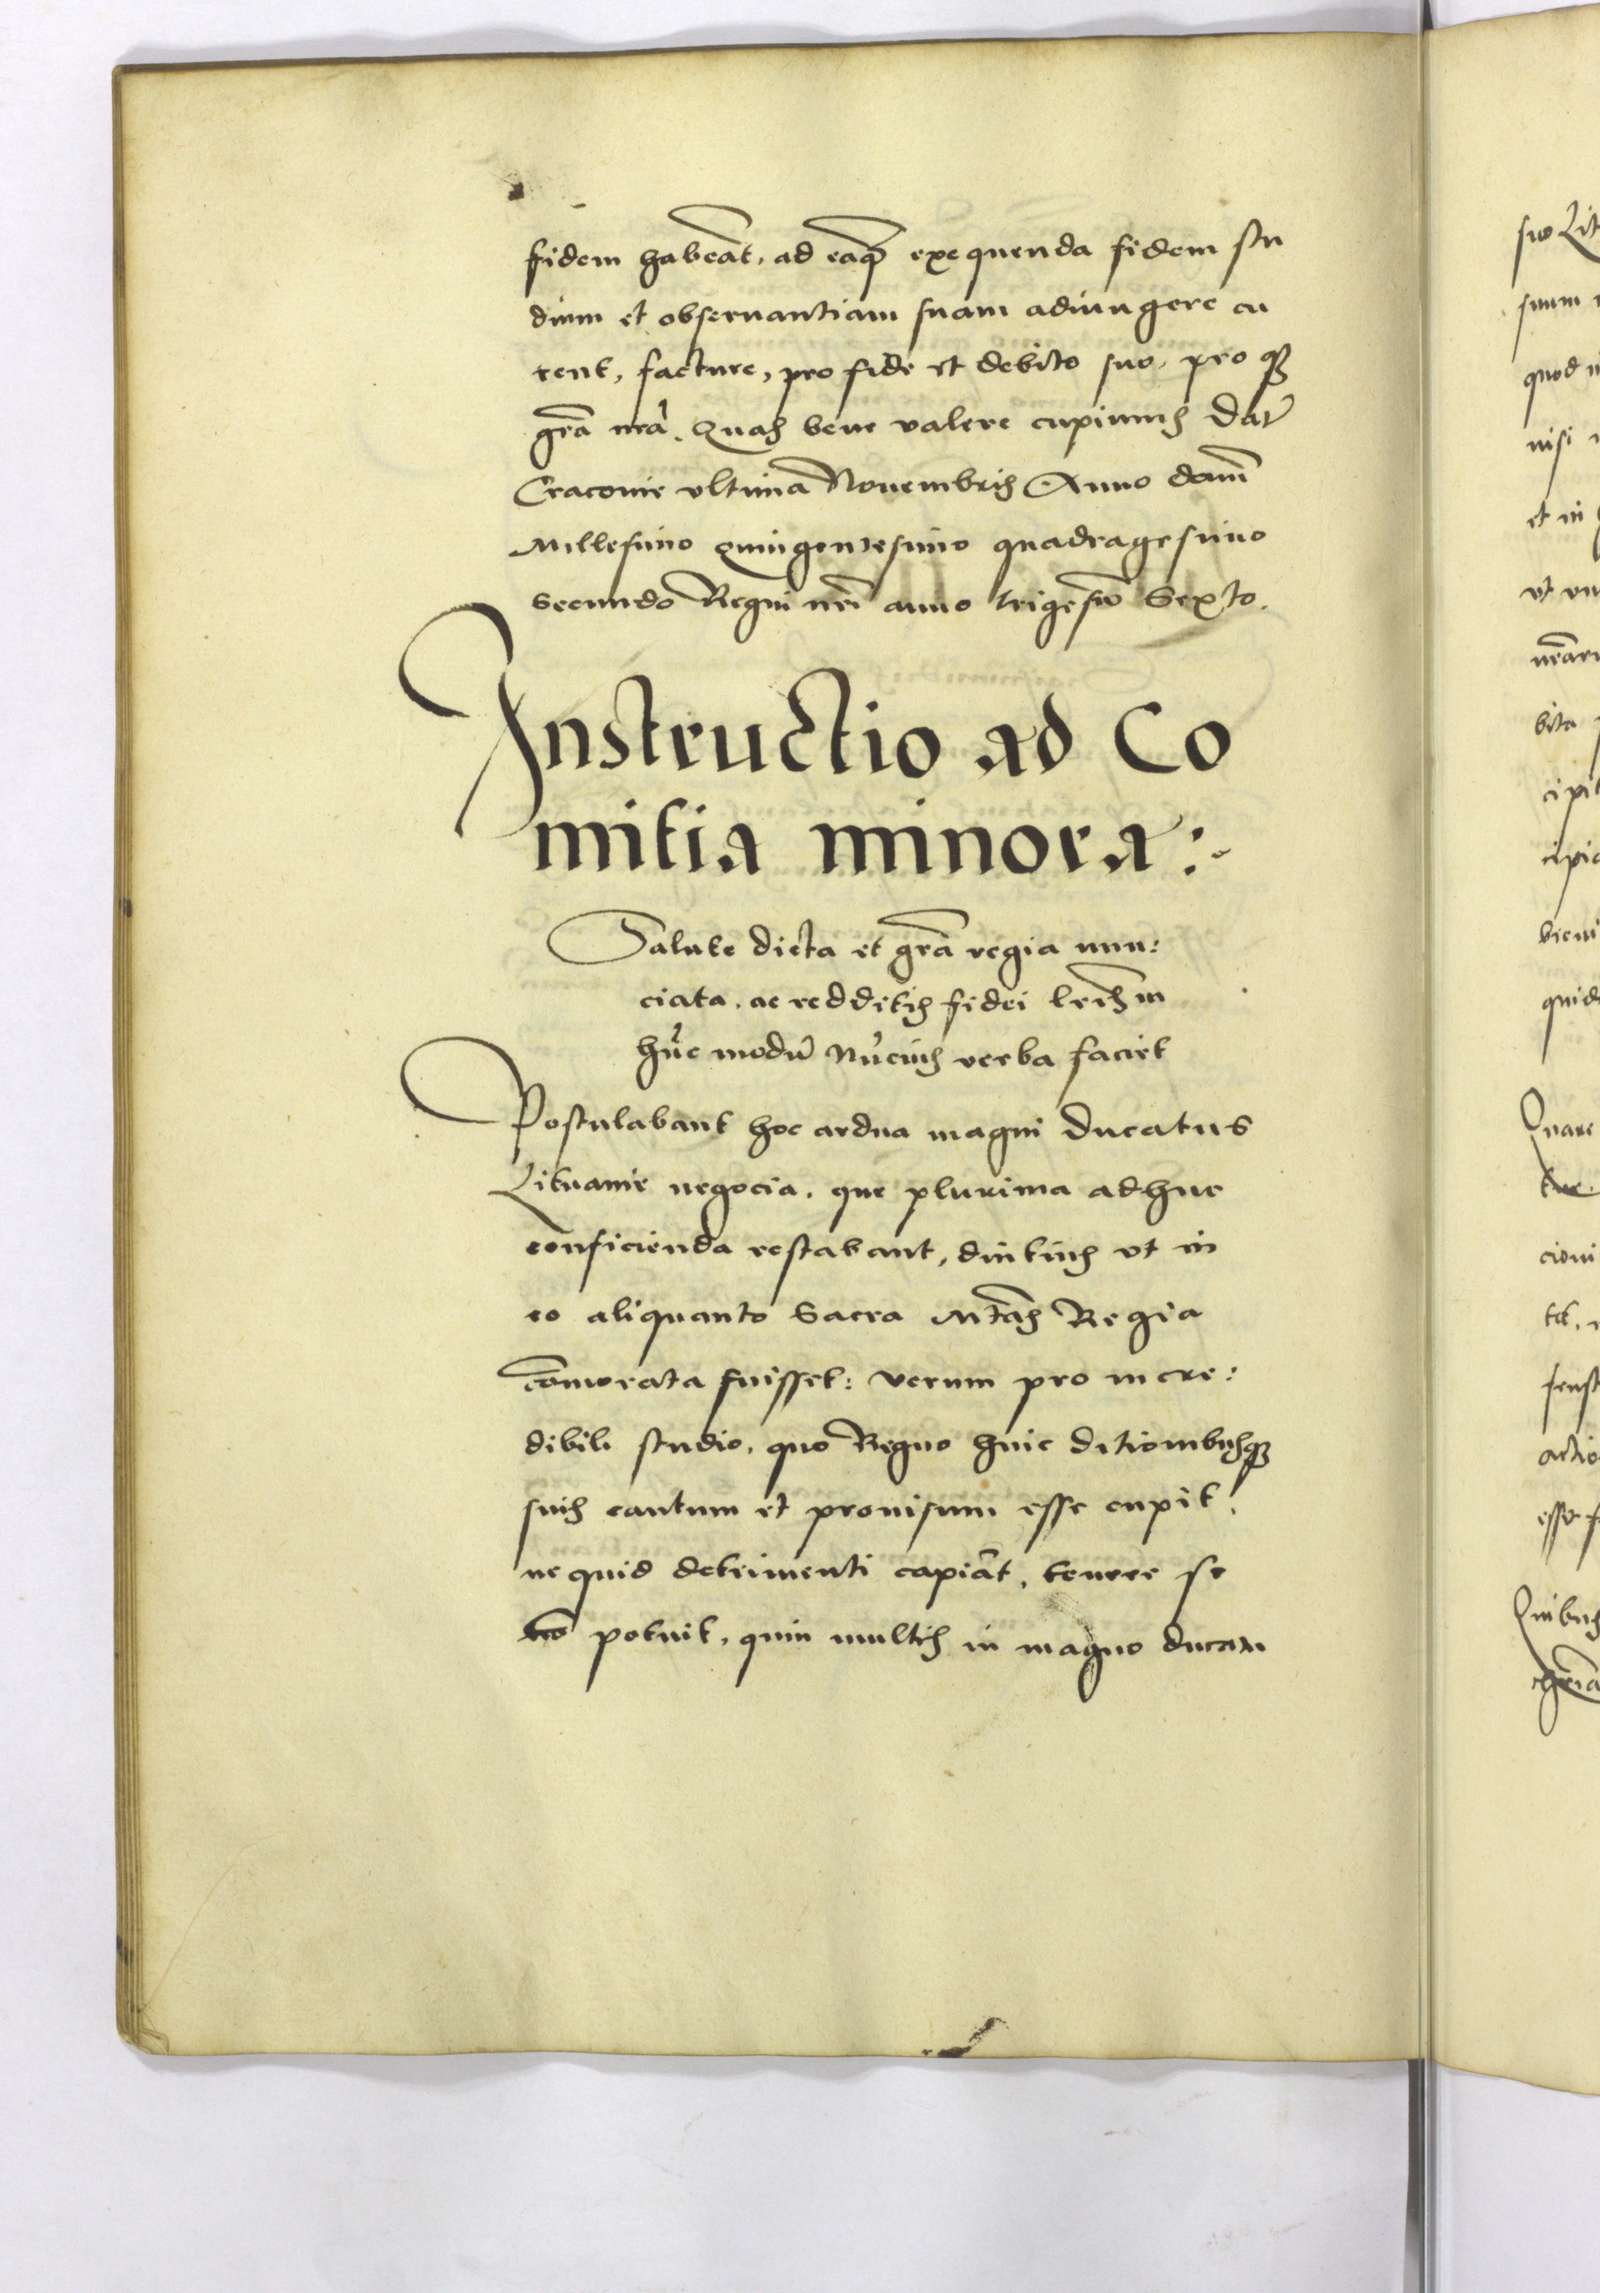 fidem habeāt, ad eaq̄ exequenda fidem stu
dium et obseruantiam suam adiungere cu
rent, facture, pro fide et debito suo, pro qꝫ
gr̄a nr̄a. Quas bene valere cupimus Dat̄
Cracouie vltima Nouembris Anno domī
Millesimo quingentesimo quadragesimo
Secundo Regni nr̄i anno trigesīo Sexto.
Instructio ad Co
mitia minora:
Salute dicta et gr̄a regia nun:
ciata, ac redditis fidei lr̄is in
hūc modū Nūcius verba faciet
Postulabant hoc ardua magni Ducatus
Lituanie negocia, que plurima adhuc
conficienda restabant, diutius vt in
eo aliquanto Sacra Mtās Regia
cōmorata fuisset: verum pro incre:
dibili studio, quo Regno huic ditionibusqꝫ
suis cautum et prouisum esse cupit,
ne quid detrimenti capiāt, tenere se
nō potuit, quin multis in magno ducatu
suo Lit
suum
quod
nisi
et in
vt
bita
cipit
cipia
Quare
cioni
actio
esse
Quibus